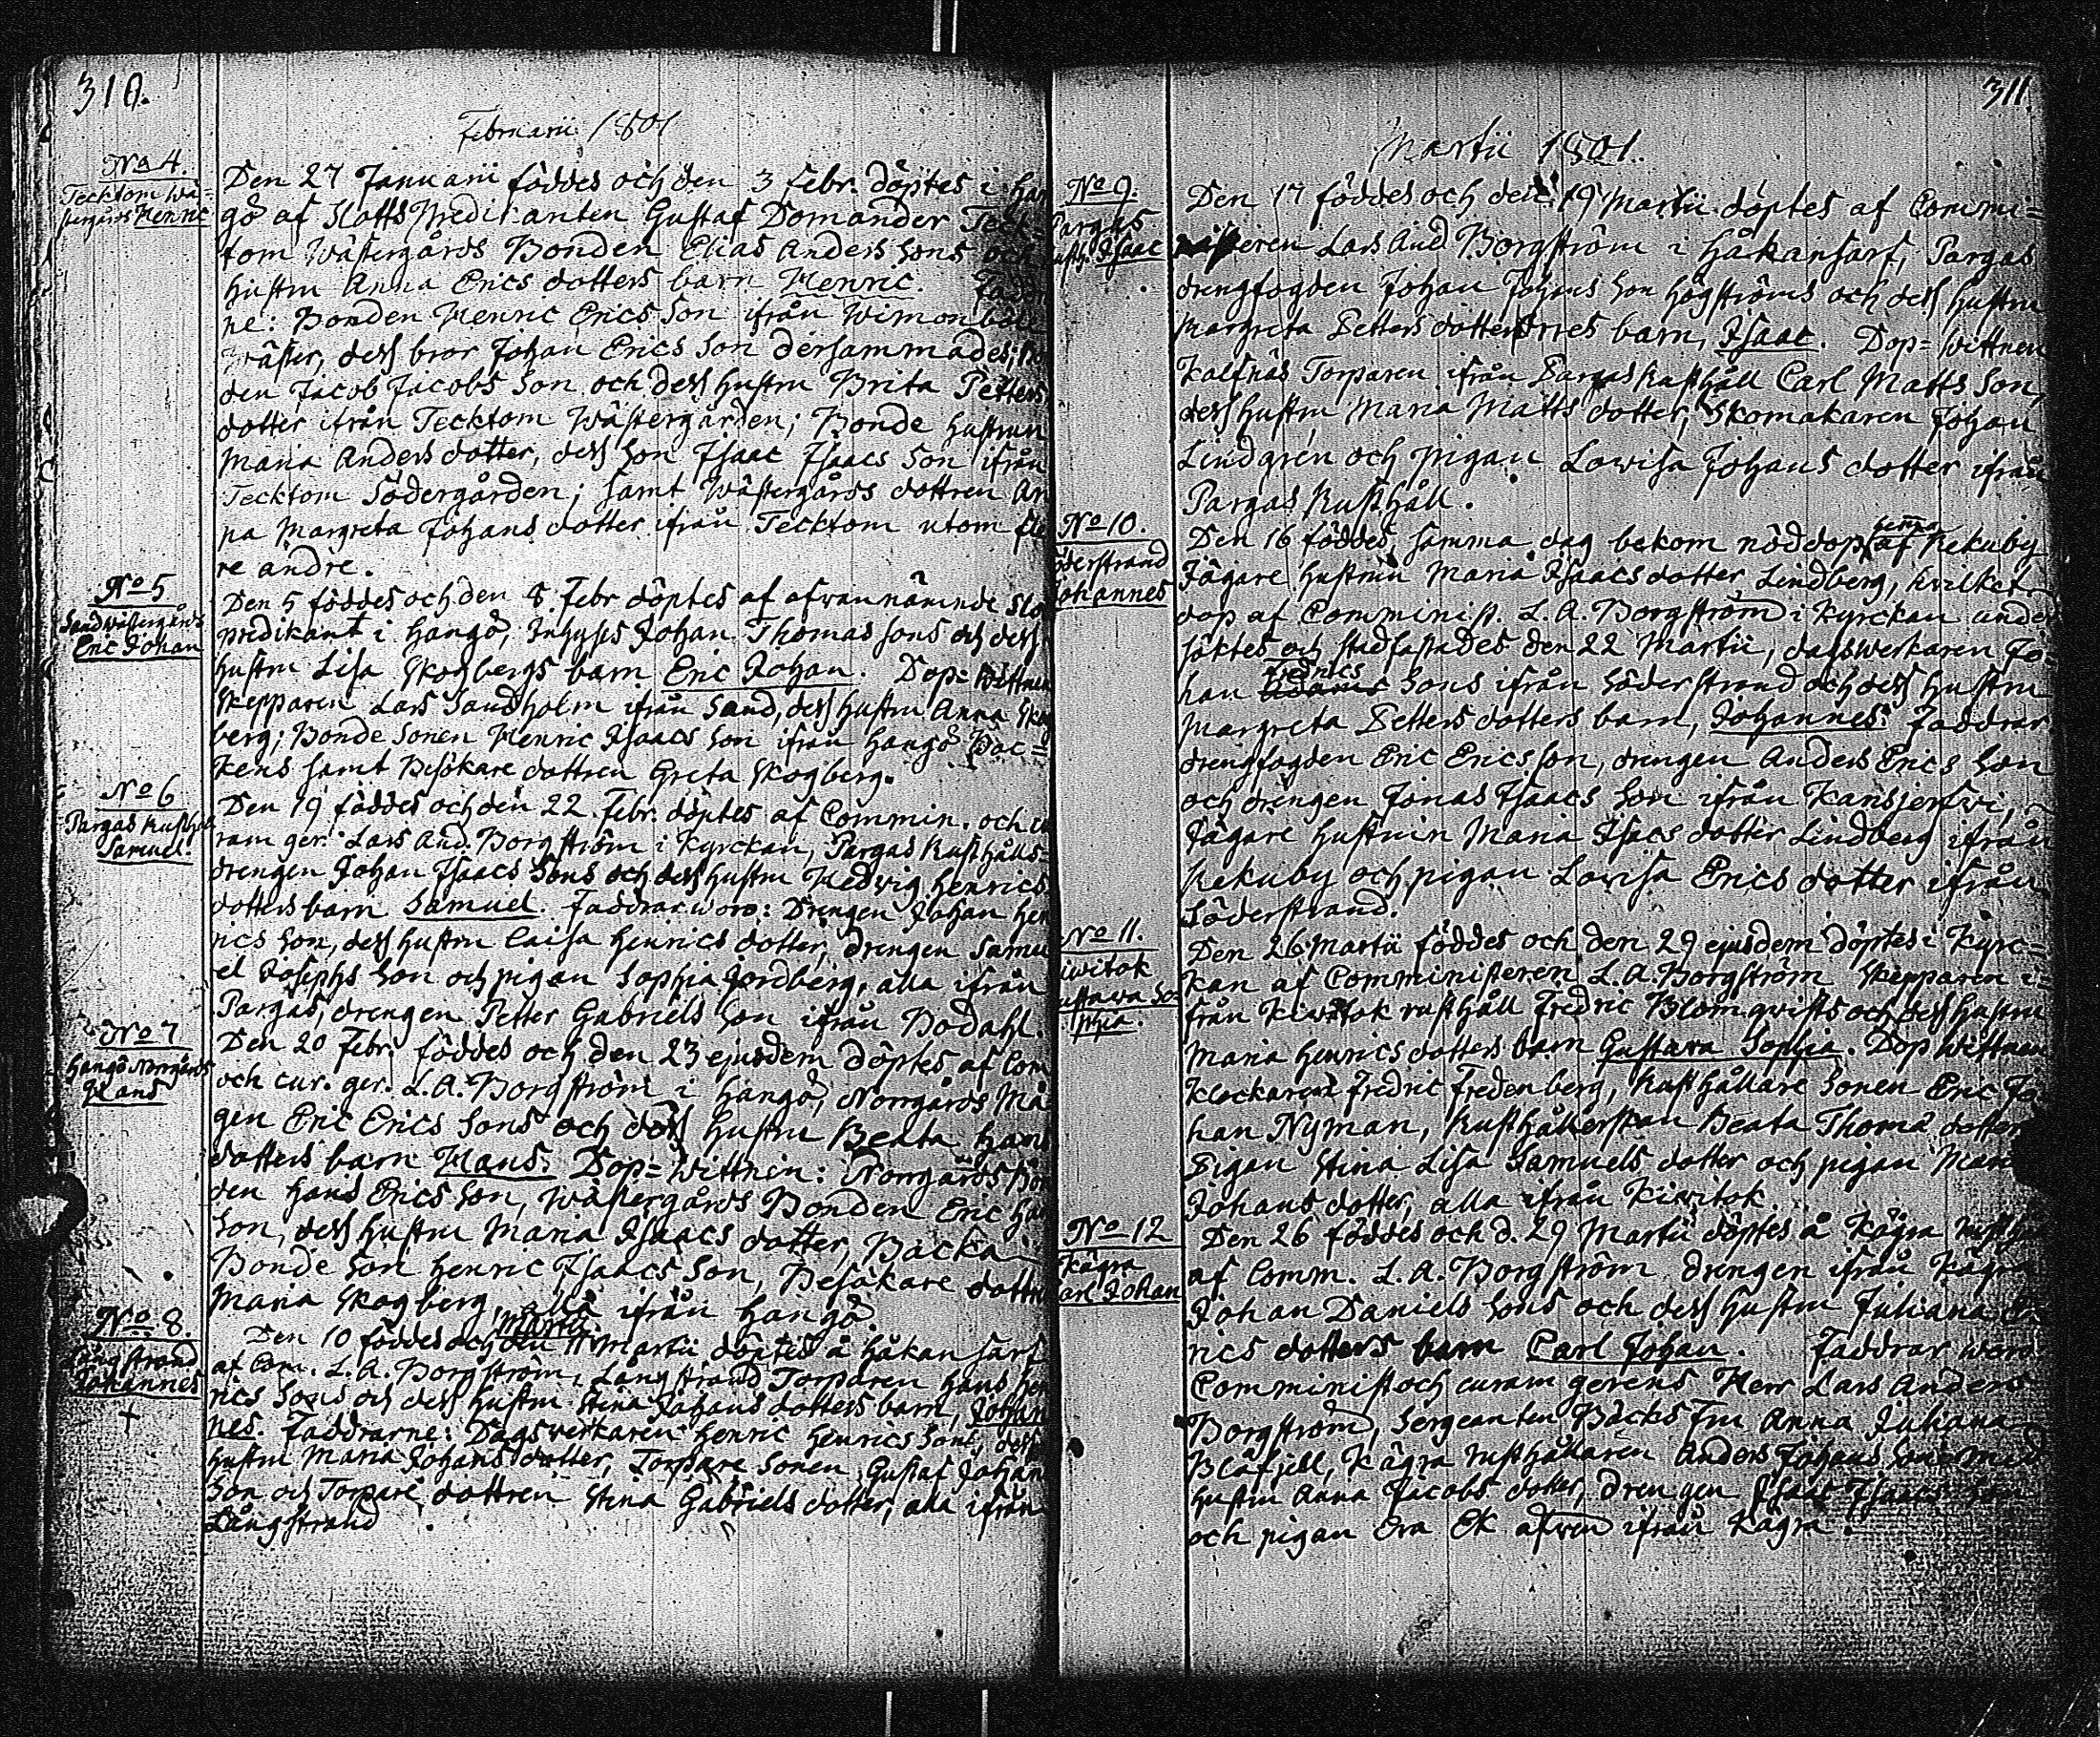 310.
Februarii 1801
No 4.
Tecktom Wä=
stergårds Henric
Den 27 Januarii föddes och den 3 Febr. döptes i Han
gö af Slotts Predikanten Gustaf Domander Teck=
tom Wästergårds Bonden Elias Anders Sons och
hustru Anna Erics dotters barn Henric. Faddr
ne: Bonden Henric Erics Son ifrån Wimonböle
wäster, dess bror Johan Erics Son dersammades;
den Jacob Jacobs Son och dess hustru Brita Petters
dotter ifrån Tecktom Wästergården; Bonde hustrun
Maria Anders dotter, dess Son Isaac Isaacs Son ifrån
Tecktom Södergården; samt Wästergårds dottren An
na Margreta Johans dotter ifrån Tecktom utom fle
re andre.
No 5
Sand wästergårds
Eric Johan
Den 5 föddes och den 8. Febr döptes af ofwannämnde Slo
predikant i Hangö, Inhyses Johan Thomas sons och dess
hustru Lisa Skogbergs barn Eric Johan. Dop=Wittnen
Skepparen Lars Sandholm ifrån Sand, dess hustru Anna Skog
berg; Bonde Sonen Henric Isaacs Son ifrån Hangö Bac=
kens samt Besökare dottren Greta Skogberg.
No 6
Pargas Rusthåll
Samuel.
Den 19 föddes och den 22. Febr. döptes af Commin. och cu
ram ger. Lars And. Borgström i Kyrckan, Pargas Rusthålls=
drengen Johan Isaacs Sons och dess hustru Hedwig Henrics
dotters barn Samuel. Faddrar woro: Drengen Johan Hen
rics Son, dess hustru Caisa Henrics dotter, drengen Samu
el Josephs Son och pigan Sophia Jordberg, alla ifrån
Pargas, drengen Petter Gabriels Son ifrån Bodahl.
No 7
Hangö Norrgårds
Hans
Den 20 Febr. föddes och den 23 ejusdem döptes af Com
och cur. ger. L. A. Borgström i Hangö, Norrgårds Må
gen Eric Erics Sons och dess hustru Beata Hans
dotters barn Hans. Dop=Wittnen: Norrgårds Bon
den Hans Erics Son, Wästergårds Bonden Eric Hans
Son, dess hustru Maria Isaacs dotter, Backa
Bonde Son Henric Isaacs Son, Besökare dottren
Maria Skogberg, alla ifrån Hangö.
No. 8.
Långstrand
Johannes
†
Martii.
Den 10 föddes och den 11 Martii döptes å Håkansarf
af Com. L. A. Borgström, Långstrand Torparen Hans Hen
rics Sons och dess hustru Stina Johans dotters barn, Johan
nes. Faddrarne: Dagswerkaren Henric Henrics Son, dess
hustru Maria Johans dotter, Torpare Sonen Gustaf Johans
Son och Torpare dottren Stina Gabriels dotter, alla ifrån
Långstrand.
311
Martii 1801.
No 9.
Pargas
Rusth. Isaac
Den 17 föddes och den 19 Martii döptes af Commi=
nisteren Lars And. Borgström i Håkansarf, Pargas
drengfogden Johan Johans Son Högströms och dess hustru
Margreta Petters dotters barn, Isaac. Dop=Wittnen
Kalfnäs Torparen ifrån Pargas Rusthåll Carl Matts Son,
dess hustru Maria Matts dotter, Skomakaren Johan
Lindgren och pigan Lowisa Johans dotter ifrån
Pargas Rusthåll.
No 10.
öderstrand
Johannes
Den 16 föddes, samma dag bekom nöddop af Rekuby
Jägare hustrun Maria Isaacsdotter Lindberg, hvilket
dop af Comminist. L. A. Borgström i Kyrckan under
söktes och stadfästades den 22 Martii, dagswerkaren Jo=
Fredrics
han Sons ifrån Söderstrand och dess hustru
Margreta Petters dotters barn, Johannes. Faddrar
drengfogden Eric Ericsson, drengen Anders Erics Son
och drengen Jonas Isaacs Son ifrån Kansjerfwi,
Jägare hustrun Maria Isacs dotter Lindberg ifrån
Rekuby och pigan Lovisa Erics dotter ifrån
Söderstrand.
No 11.
iwitok
ustawa So=
phia.
Den 26 Martii föddes och den 29 ejusdem döptes i Kyrc=
kan af Comministeren L. A. Borgström Skepparen i=
från Kiwitok rusthåll Fredric Blomqwists och dess hustru
Maria Henrics dotters barn Gustava Sophia. Dop Wittnen
Klockaren Fredric Fredenberg, Rusthållare Sonen Eric Jo
han Nyman, Rusthållerskan Beata Thomæ dotter
Pigan Stina Lisa Samuels dotter och pigan Maria
Johans dotter, alla ifrån Kiwitok
No 12
Kägra
arl Johan
Den 26 föddes och d. 29 Martii döptes å Kägra rusthåll
af Comm. L. A. Borgström drengen ifrån Kägra
Johan Daniels Sons och dess hustru Juliana E
rics dotters barn Carl Johan. Faddrar woro
Comminist och curam gerens Herr Lars Anders
Borgström, Sergeanten Bäcks Fru Anna Juliana
Blåfjell, Kägra rusthållaren Anders Johans Son med
hustru Anna Jacobs dotter, drengen Isaac Isaacs Son
och pigan Eva Ek afwen ifrån Kägra.